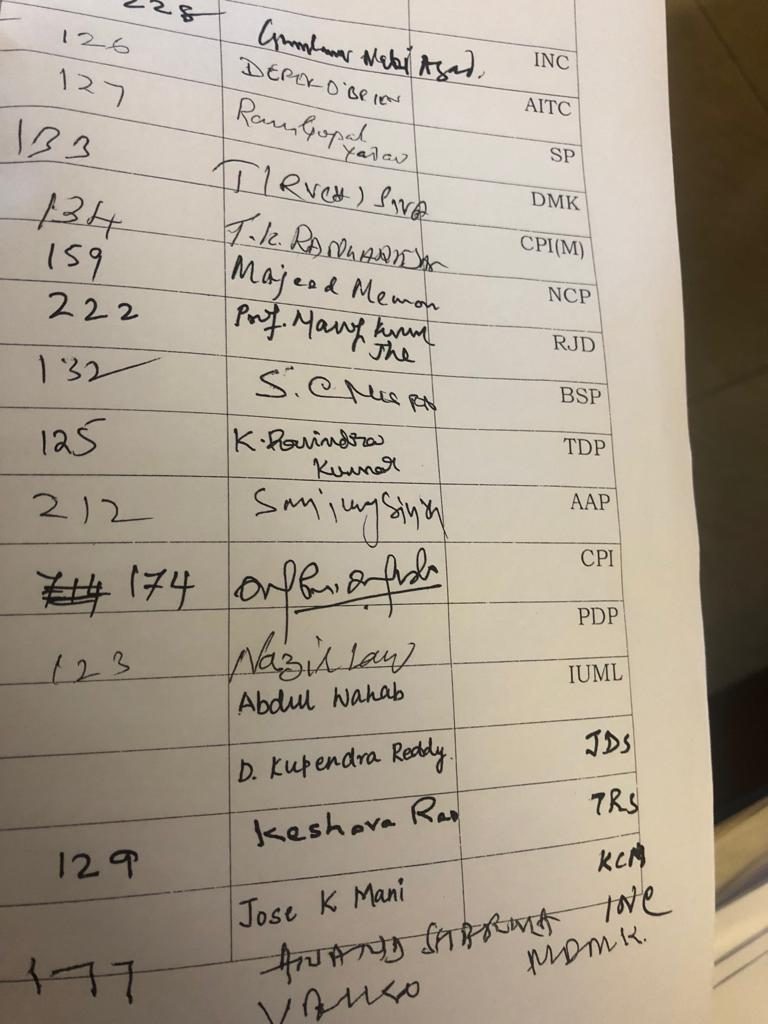 228
126 Ghulam Nabi Azad. INC
127 DEREK O'BRIEN AITC
Ram Gopal
Yadav SP
133 T I RUCHI SIVA DMK
134 T.K. RANGARAJAN CPI(M)
159 Majeed Memon NCP
222 Prof. Manoj Kumar
Jha RJD
132 S. C. BSP
125 K. Ravindra
Kumar TDP
212 Sanjay Singh AAP
174 CPI
123 Nazir Laway PDP
Abdul Wahab IUML
D. Kupendra Reddy. JDS
129 Keshava Rao TRS
Jose K Mani KCM
177 ANAND SHARMA INC
VAIKO MDMK.